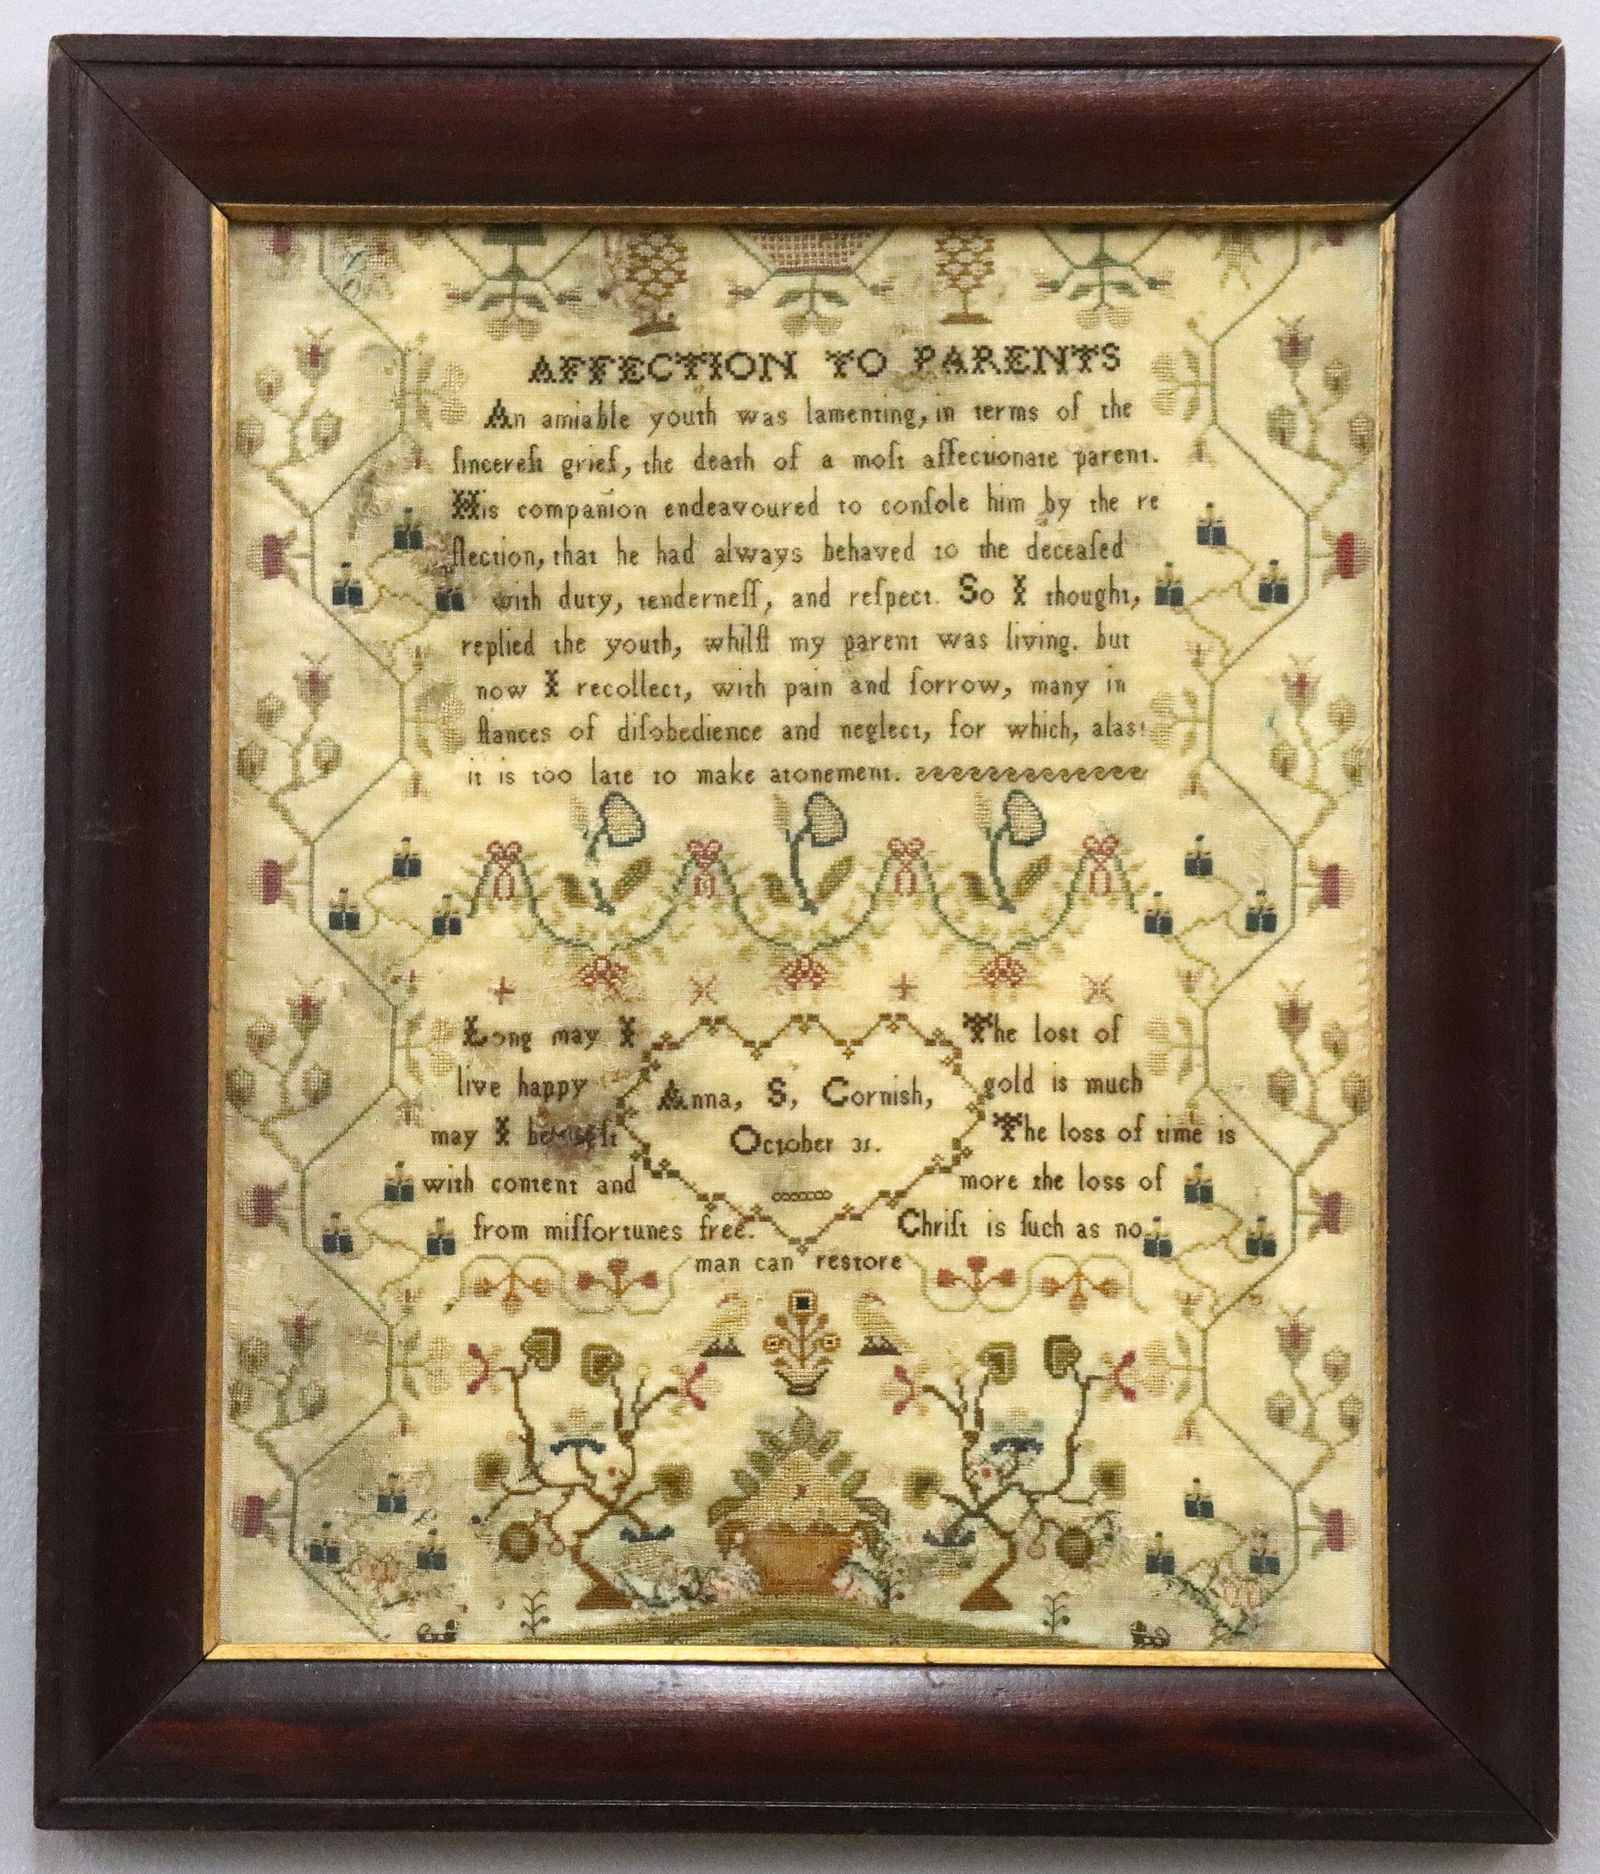 AFFECTION TO PARENTS
An amiable youth was lamenting, in terms of the
ſincereſt grief, the death of a moſt affectionate parent.
His companion endeavoured to conſole him by the re
flection, that he had always behaved to the deceaſed
with duty, tenderneſſ, and reſpect. So I thought,
replied the youth, whilſt my parent was living. but
now I recollect, with pain and ſorrow, many in
ſtances of diſobedience and neglect, for which, alas!
it is too late to make atonement.
Long may I
live happy
may I be
with content and
from miſfortunes free.
Anna, S, Cornish,
October 31.
The lost of
gold is much
The loss of time is
more the loss of
Chriſt is ſuch as no
man can restore